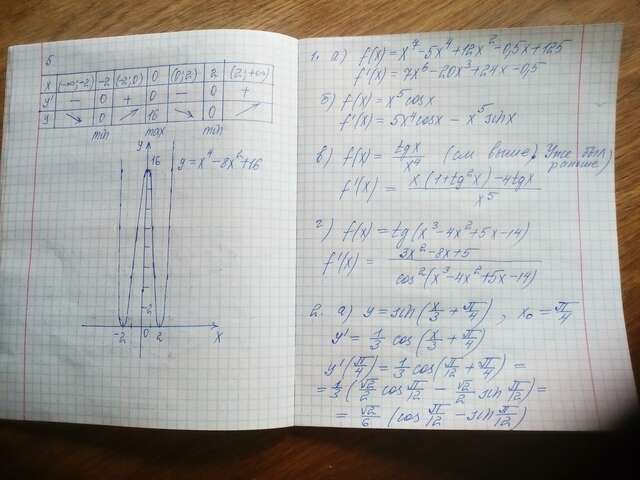 5
x (-∞;-2) -2 (-2;0) 0 (0;2) 2 (2;+∞)
y' - 0 + 0 - 0 +
y ↘ 0 ↗ 16 ↘ 0 ↗
min max min
y
16
y = x⁴-8x²+16
2
-2 0 2 x
1. а) f(x)=x⁷-5x⁴+12x²-0,5x+125
f'(x)=7x⁶-20x³+24x-0,5
б) f(x)=x⁵cosx
f'(x)=5x⁴cosx - x⁵sinx
в) f(x)= tgx/x⁴ (см выше, уже был раньше)
f'(x) = (x(1+tg²x)-4tgx)/x⁵
г) f(x)=tg(x³-4x²+5x-14)
f'(x)= (3x²-8x+5)/(cos²(x³-4x²+5x-14))
2. а) y=sin(x/3+π/4), x₀=π/4
y'=1/3 cos(x/3+π/4)
y'(π/4)=1/3 cos(π/12+π/4)=
=1/3(√2/2 cos π/12 - √2/2 sin π/12)=
= √2/6 (cos π/12 - sin π/12)